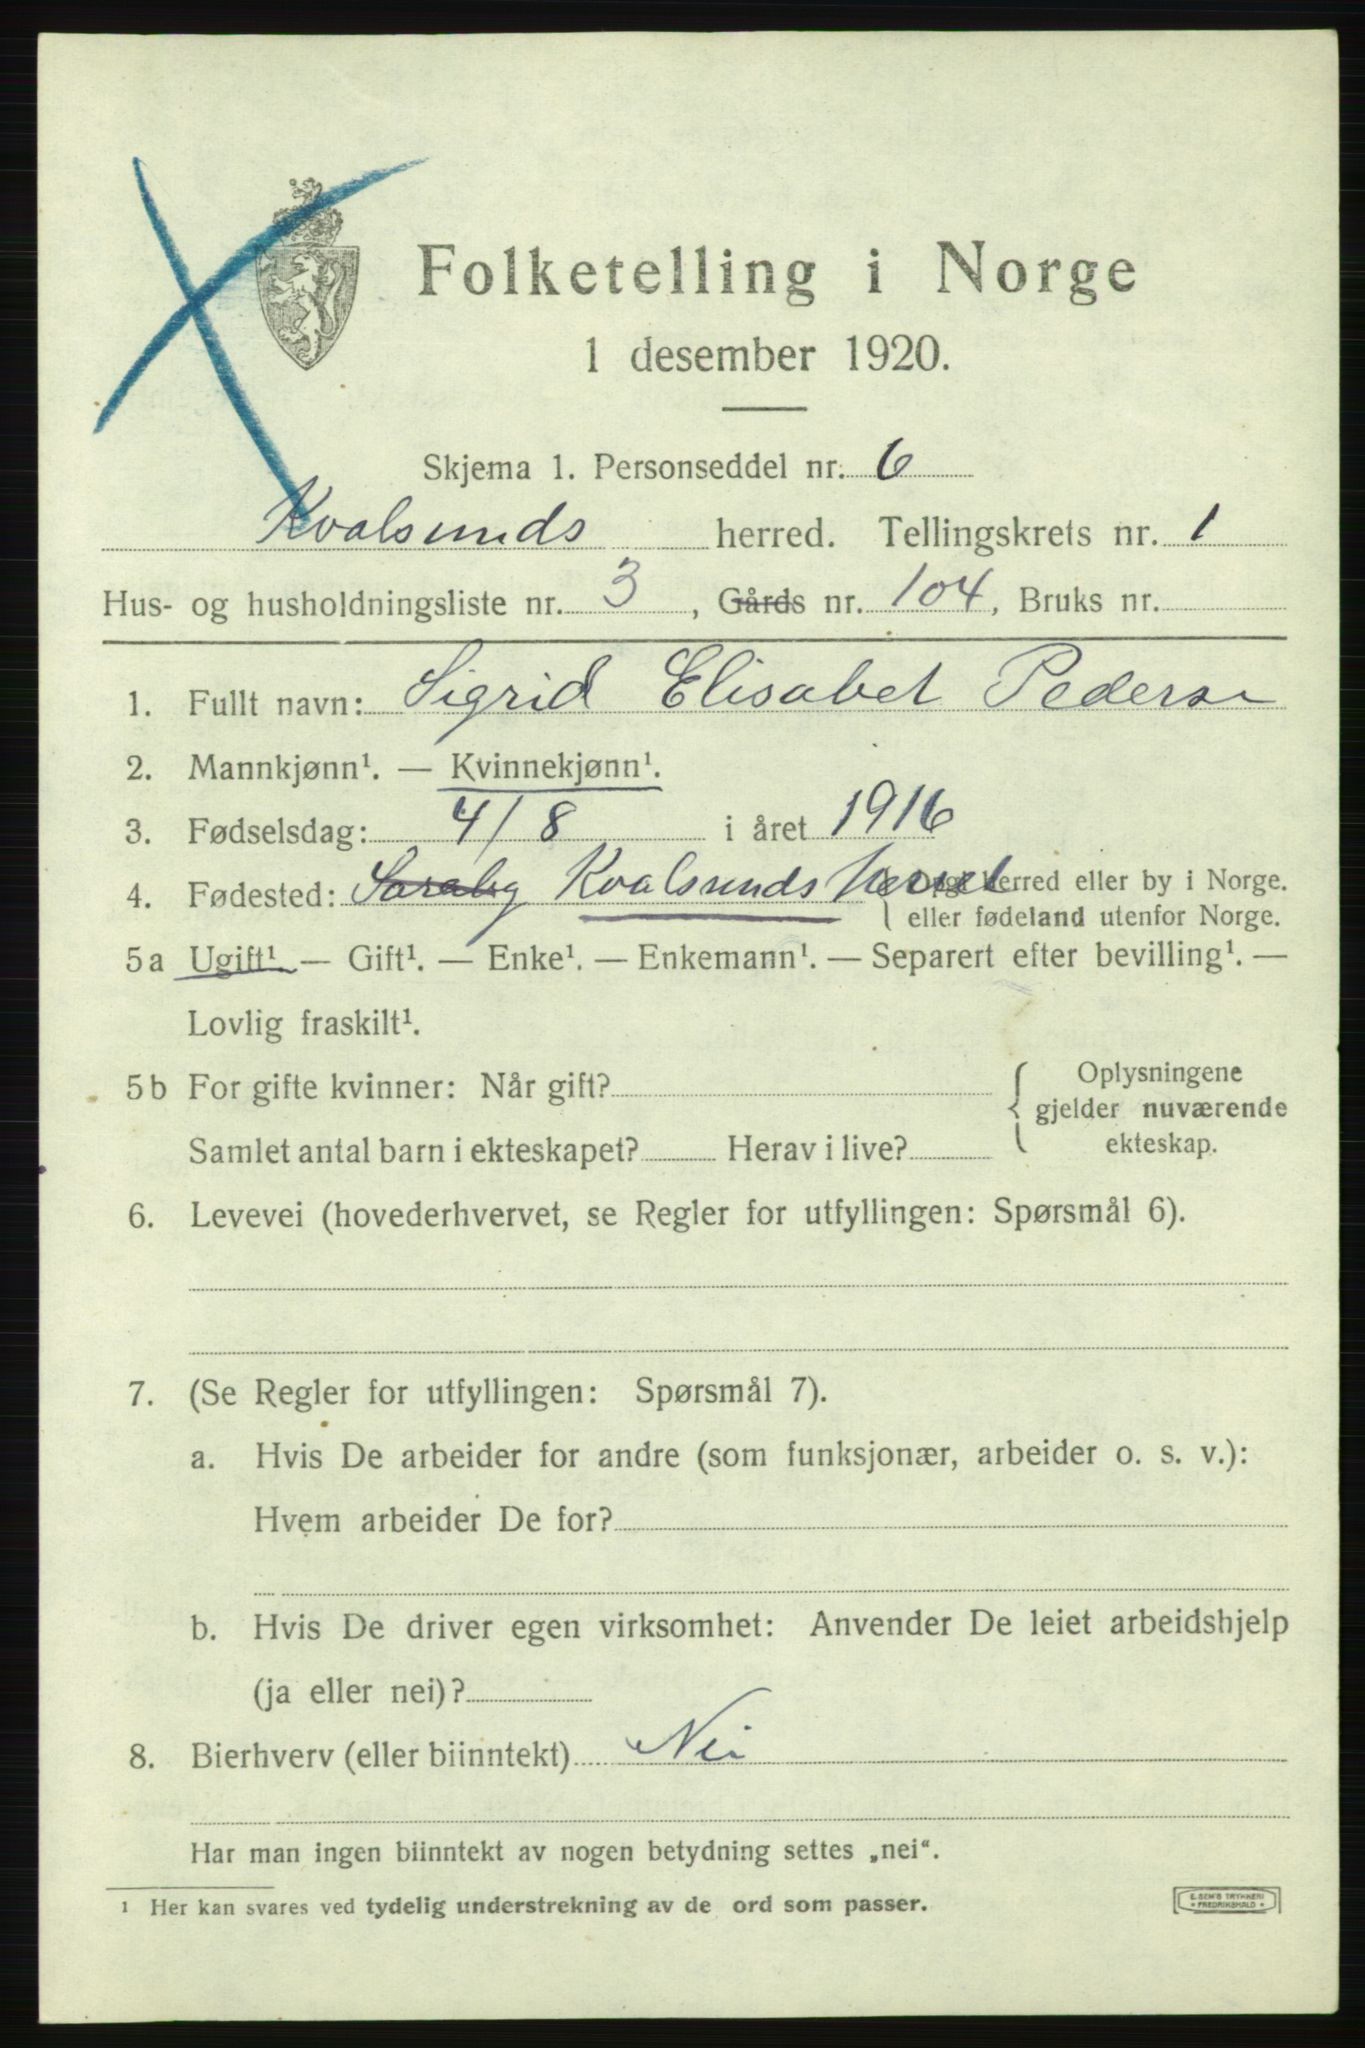 Folketelling i Norge
1 desember 1920.
Skjema 1. Personseddel nr. 6
Kvalsunds herred. Tellingskrets nr. 1
Hus- og husholdningsliste nr. 3, Gårds nr. 104, Bruks nr.
1. Fullt navn: Sigrid Elisabet Pedersen
2. Mannkjønn¹. — Kvinnekjønn¹.
3. Fødselsdag: 4/8 i året 1916
4. Fødested: Kvalsunds herred { Opgi herred eller by i Norge.
eller fødeland utenfor Norge.
5a Ugift¹. — Gift¹. — Enke¹. — Enkemann¹. — Separert efter bevilling¹. —
Lovlig fraskilt¹.
5b For gifte kvinner: Når gift?
Samlet antal barn i ekteskapet? Herav i live?
Oplysningene
gjelder nuværende
ekteskap.
6. Levevei (hovederhvervet, se Regler for utfyllingen: Spørsmål 6).
7. (Se Regler for utfyllingen: Spørsmål 7).
a. Hvis De arbeider for andre (som funksjonær, arbeider o. s. v.):
Hvem arbeider De for?
b. Hvis De driver egen virksomhet: Anvender De leiet arbeidshjelp
(ja eller nei)?
8. Bierhverv (eller biinntekt) Nei
Har man ingen biinntekt av nogen betydning settes „nei“.
¹ Her kan svares ved tydelig understrekning av de ord som passer.
E. SEM'S TRYKKERI
* FREDRIKSHALD *